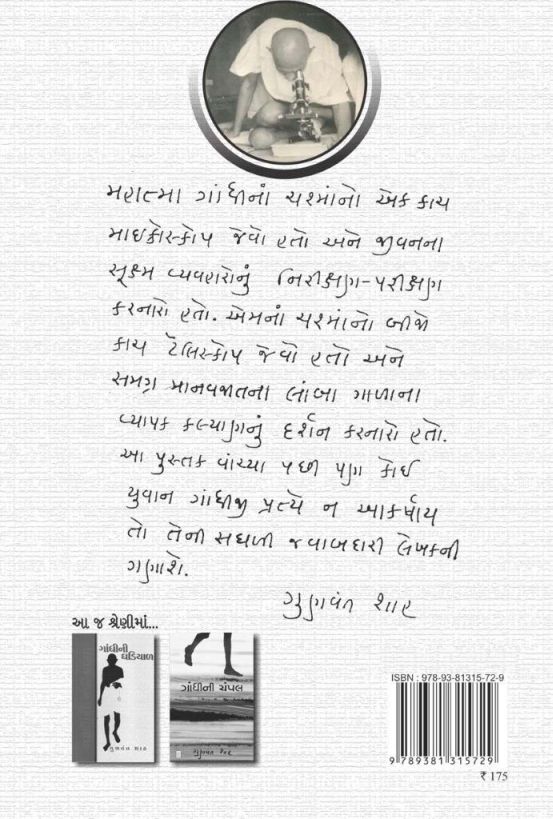 મહાત્મા ગાંધીનાં ચશ્માંનો એક કાચ
માઇક્રોસ્કોપ જેવો હતો અને જીવનના
સૂક્ષ્મ વ્યવહારોનું નિરીક્ષણ-પરીક્ષણ
કરનારો હતો. એમનાં ચશ્માંનો બીજો
કાચ ટૅલિસ્કોપ જેવો હતો અને
સમગ્ર માનવજાતના લાંબા ગાળાના
વ્યાપક કલ્યાણનું દર્શન કરનારો હતો.
આ પુસ્તક વાંચ્યા પછી પણ કોઈ
યુવાન ગાંધીજી પ્રત્યે ન આકર્ષાય
તો તેની સઘળી જવાબદારી લેખકની
ગણાશે.
ગુણવંત શાહ
આ જ શ્રેણીમાં...
ગાંધીની
ઘડિયાળ
ગુણવંત શાહ
ગાંધીની ચંપલ
ગુણવંત શાહ
ISBN : 978-93-81315-72-9
9 789381 315729
₹ 175